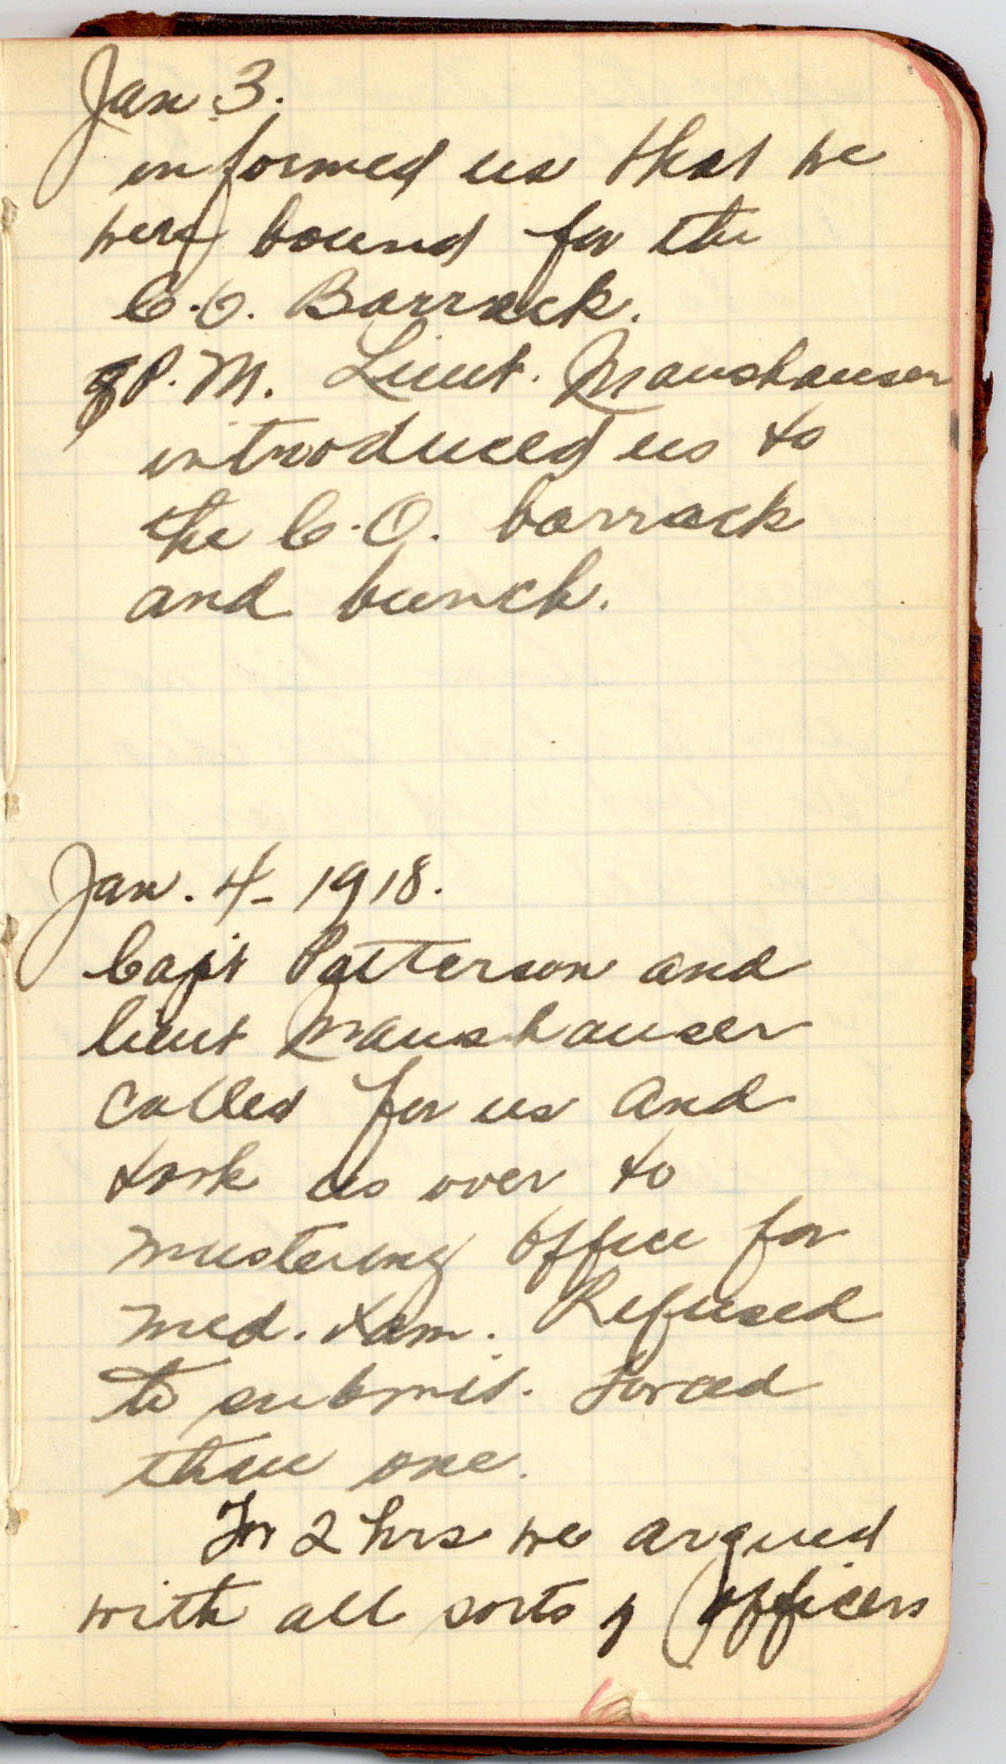 Jan 3.
informed us that we
were bound for the
C.O. Barrack.
P.M. Lieut. Manshauser
introduced us to
the C.O. barrack
and bunch.
Jan. 4 - 1918.
Capt Patterson and
lieut Manshauser
called for us and
took us over to
mustering office for
med. xam. Refused
to submit. Forced
thru one.
For 2 hrs we argued
with all sorts of officers